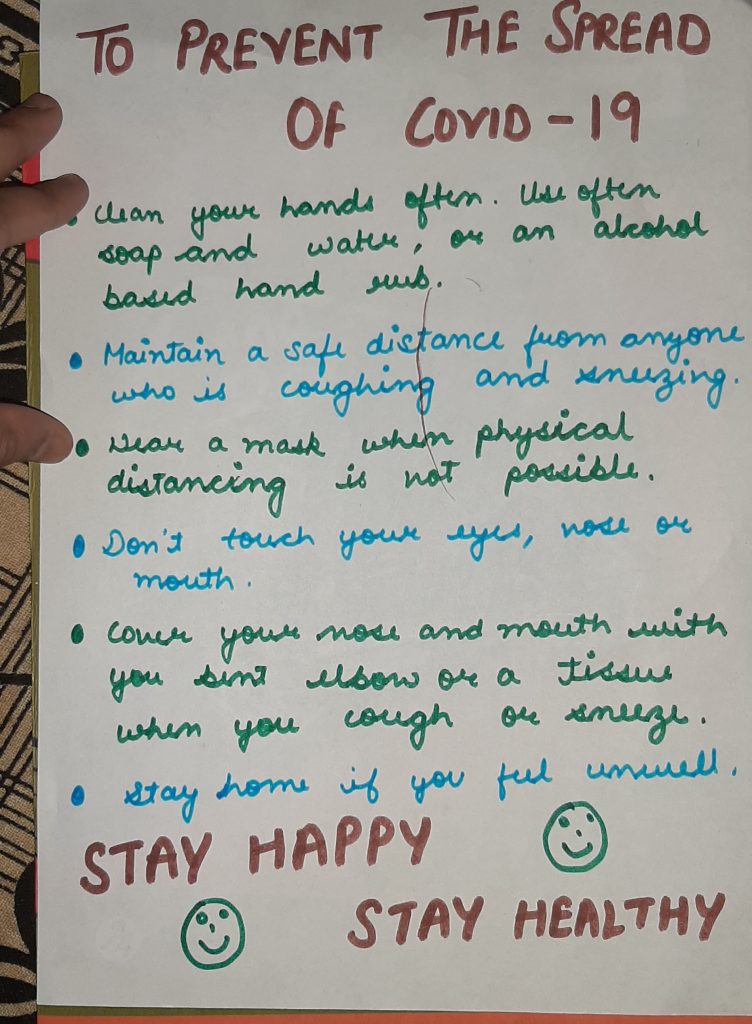 TO PREVENT THE SPREAD
OF COVID-19
• Clean your hands often. Use often
soap and water, or an alcohol
based hand rub.
• Maintain a safe distance from anyone
who is coughing and sneezing.
• Wear a mask when physical
distancing is not possible.
• Don't touch your eyes, nose or
mouth.
• Cover your nose and mouth with
you bent elbow or a tissue
when you cough or sneeze.
• Stay home if you feel unwell.
STAY HAPPY
STAY HEALTHY